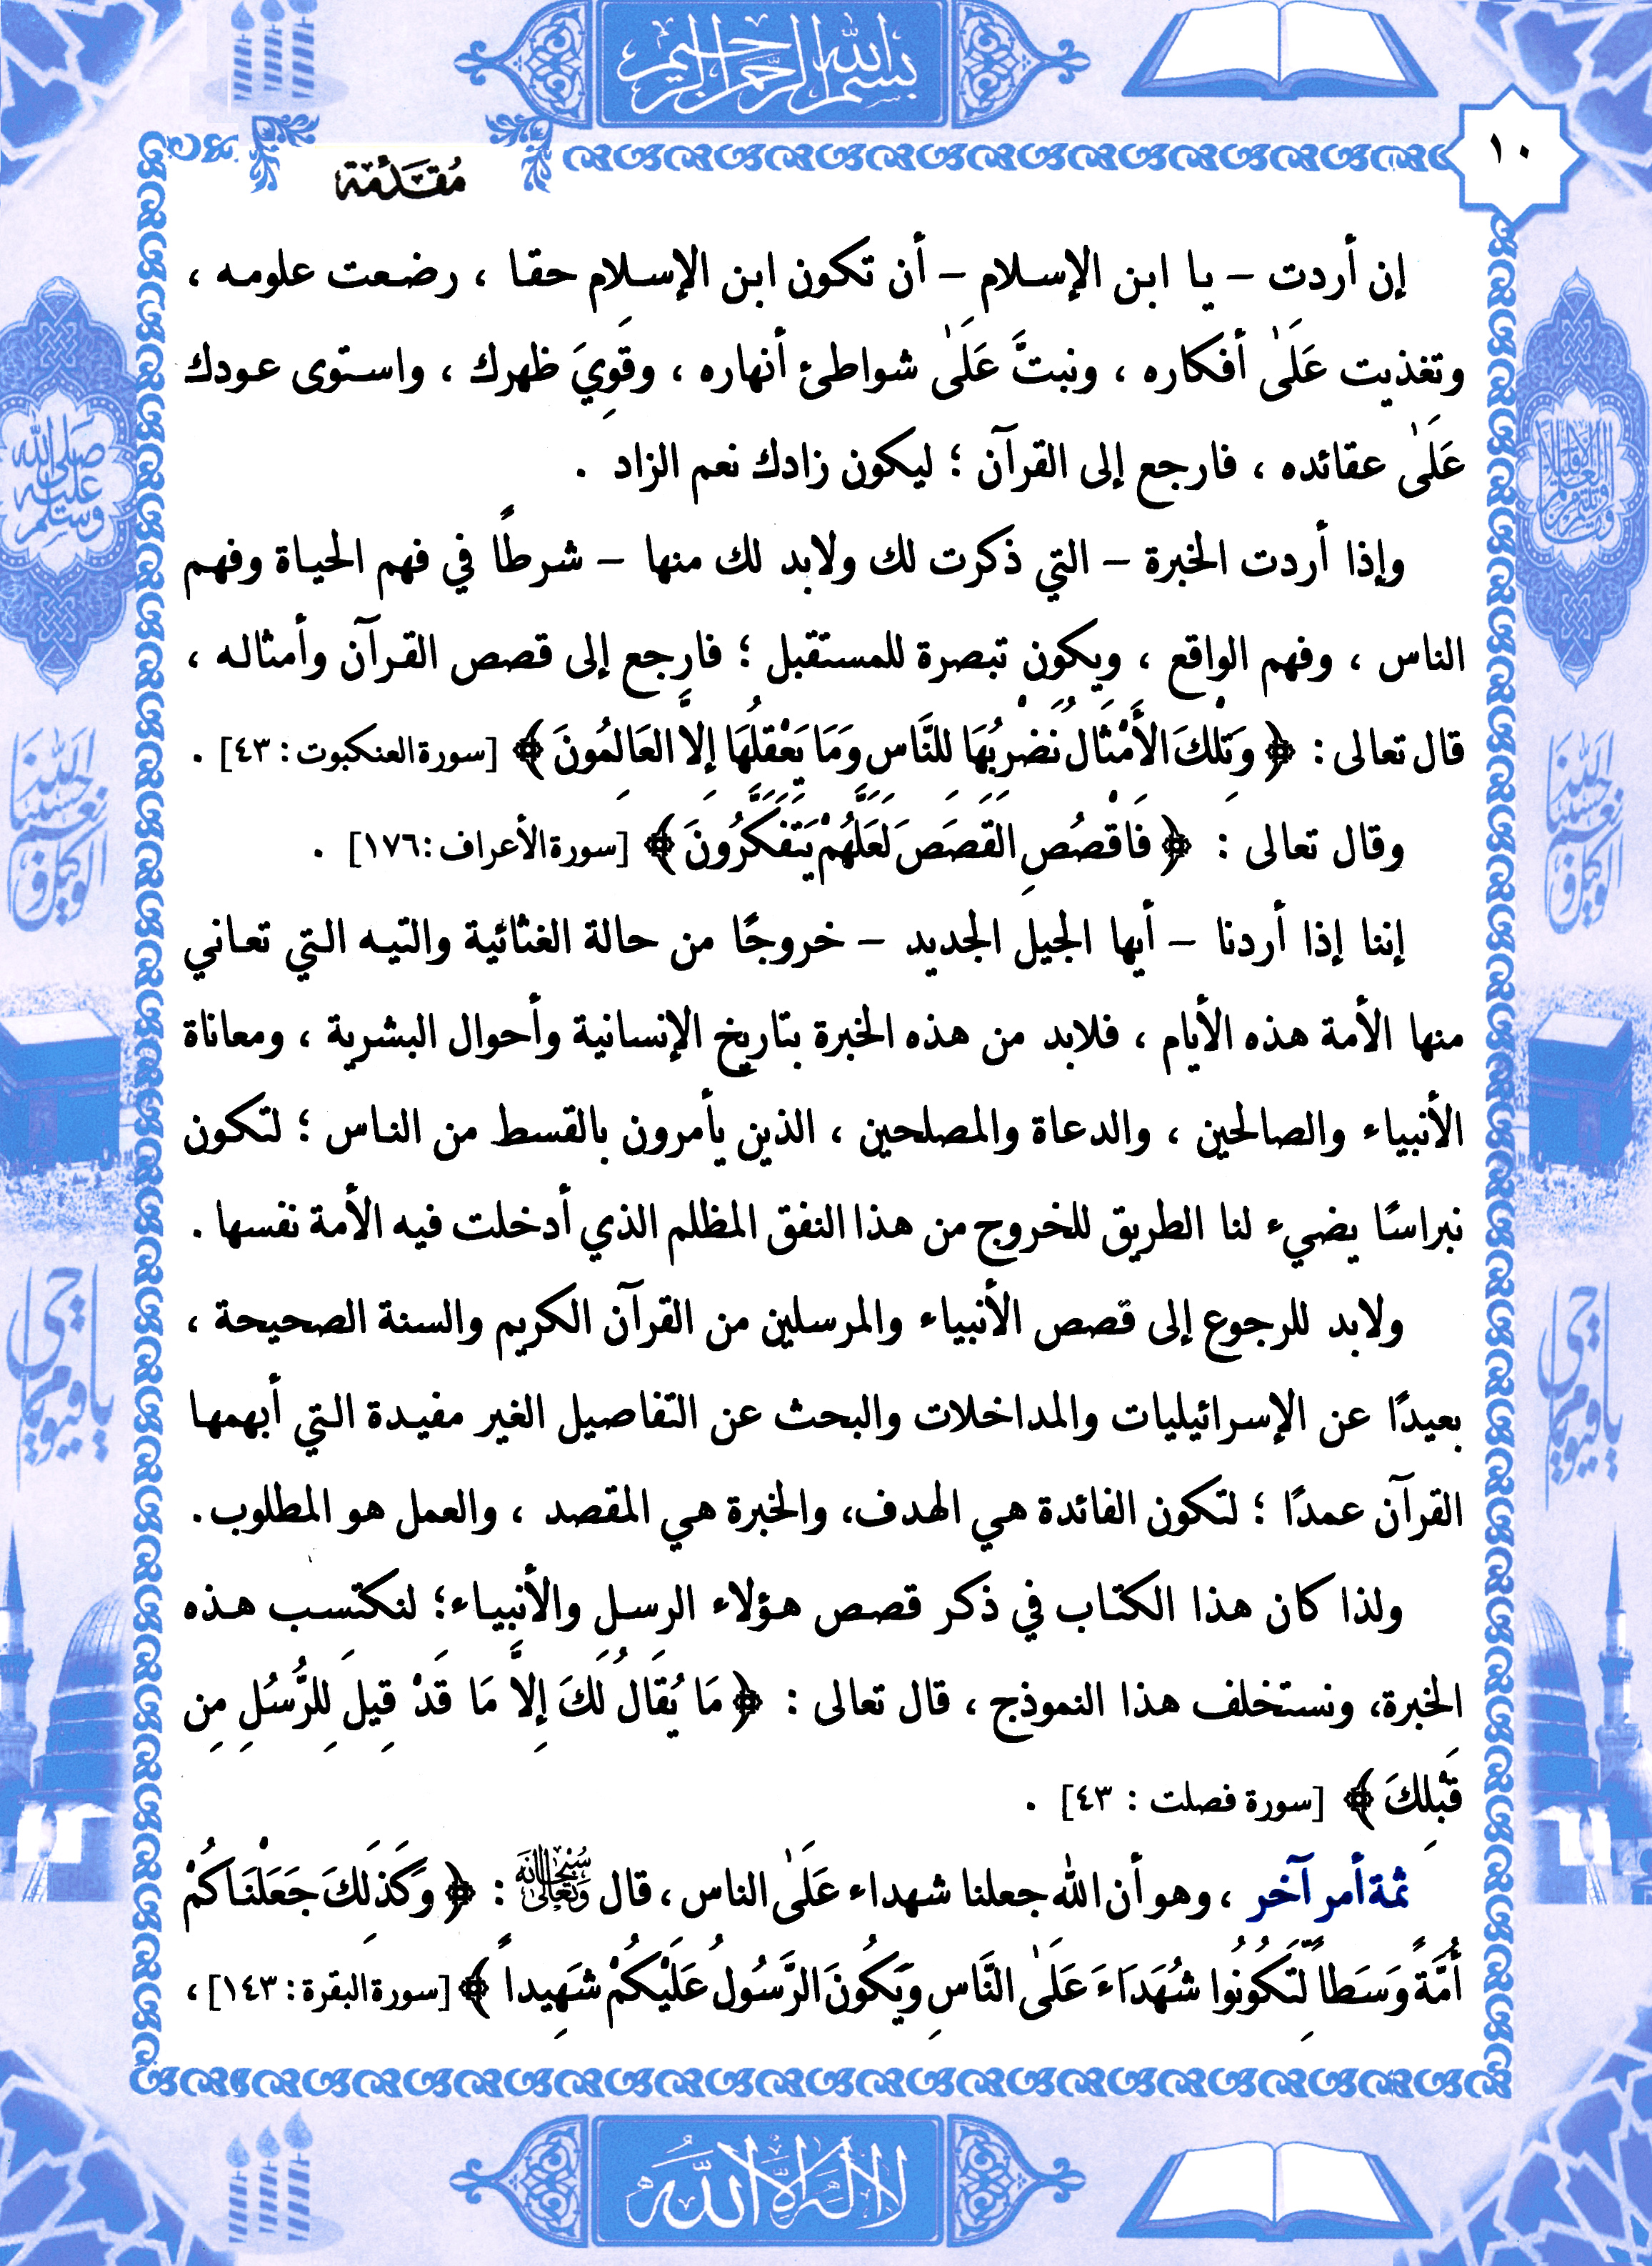 بسم الله الرحمن الرحيم
١٠
مُقَدِّمَة
إن أردت – يا ابن الإسلام – أن تكون ابن الإسلام حقا ، رضعت علومه ،
وتغذيت عَلَىٰ أفكاره ، ونبتَّ عَلَىٰ شواطئ أنهاره ، وقَوِيَ ظهرك ، واستوى عودك
عَلَىٰ عقائده ، فارجع إلى القرآن ؛ ليكون زادك نعم الزاد .
وإذا أردت الخبرة – التي ذكرت لك ولابد لك منها – شرطًا في فهم الحياة وفهم
الناس ، وفهم الواقع ، ويكون تبصرة للمستقبل ؛ فارجع إلى قصص القرآن وأمثاله ،
قال تعالى : ﴿ وَتِلْكَ الأَمْثَالُ نَضْرِبُهَا لِلنَّاسِ وَمَا يَعْقِلُهَا إِلاَّ العَالِمُونَ ﴾ [سورة العنكبوت : ٤٣] .
وقال تعالى : ﴿ فَاقْصُصِ القَصَصَ لَعَلَّهُمْ يَتَفَكَّرُونَ ﴾ [سورة الأعراف : ١٧٦] .
إننا إذا أردنا – أيها الجيل الجديد – خروجًا من حالة الغثائية والتيه التي تعاني
منها الأمة هذه الأيام ، فلابد من هذه الخبرة بتاريخ الإنسانية وأحوال البشرية ، ومعاناة
الأنبياء والصالحين ، والدعاة والمصلحين ، الذين يأمرون بالقسط من الناس ؛ لتكون
نبراسًا يضيء لنا الطريق للخروج من هذا النفق المظلم الذي أدخلت فيه الأمة نفسها .
ولابد للرجوع إلى قصص الأنبياء والمرسلين من القرآن الكريم والسنة الصحيحة ،
بعيدًا عن الإسرائيليات والمداخلات والبحث عن التفاصيل الغير مفيدة التي أبهمها
القرآن عمدًا ؛ لتكون الفائدة هي الهدف، والخبرة هي المقصد ، والعمل هو المطلوب.
ولذا كان هذا الكتاب في ذكر قصص هؤلاء الرسل والأنبياء؛ لنكتسب هذه
الخبرة، ونستخلف هذا النموذج ، قال تعالى : ﴿ مَا يُقَالُ لَكَ إِلاَّ مَا قَدْ قِيلَ لِلرُّسُلِ مِن
قَبْلِكَ ﴾ [سورة فصلت : ٤٣] .
ثمة أمر آخر ، وهو أن الله جعلنا شهداء عَلَىٰ الناس ، قال سُبْحَانَهُ وَتَعَالَى : ﴿ وَكَذَلِكَ جَعَلْنَاكُمْ
أُمَّةً وَسَطاً لِّتَكُونُوا شُهَدَاءَ عَلَىٰ النَّاسِ وَيَكُونَ الرَّسُولُ عَلَيْكُمْ شَهِيداً ﴾ [سورة البقرة : ١٤٣] ،
صلى الله عليه وسلم
الله حسبنا نعم الوكيل
الله حسبنا نعم الوكيل
يا حي يا قيوم
يا حي يا قيوم
لا إله إلا الله